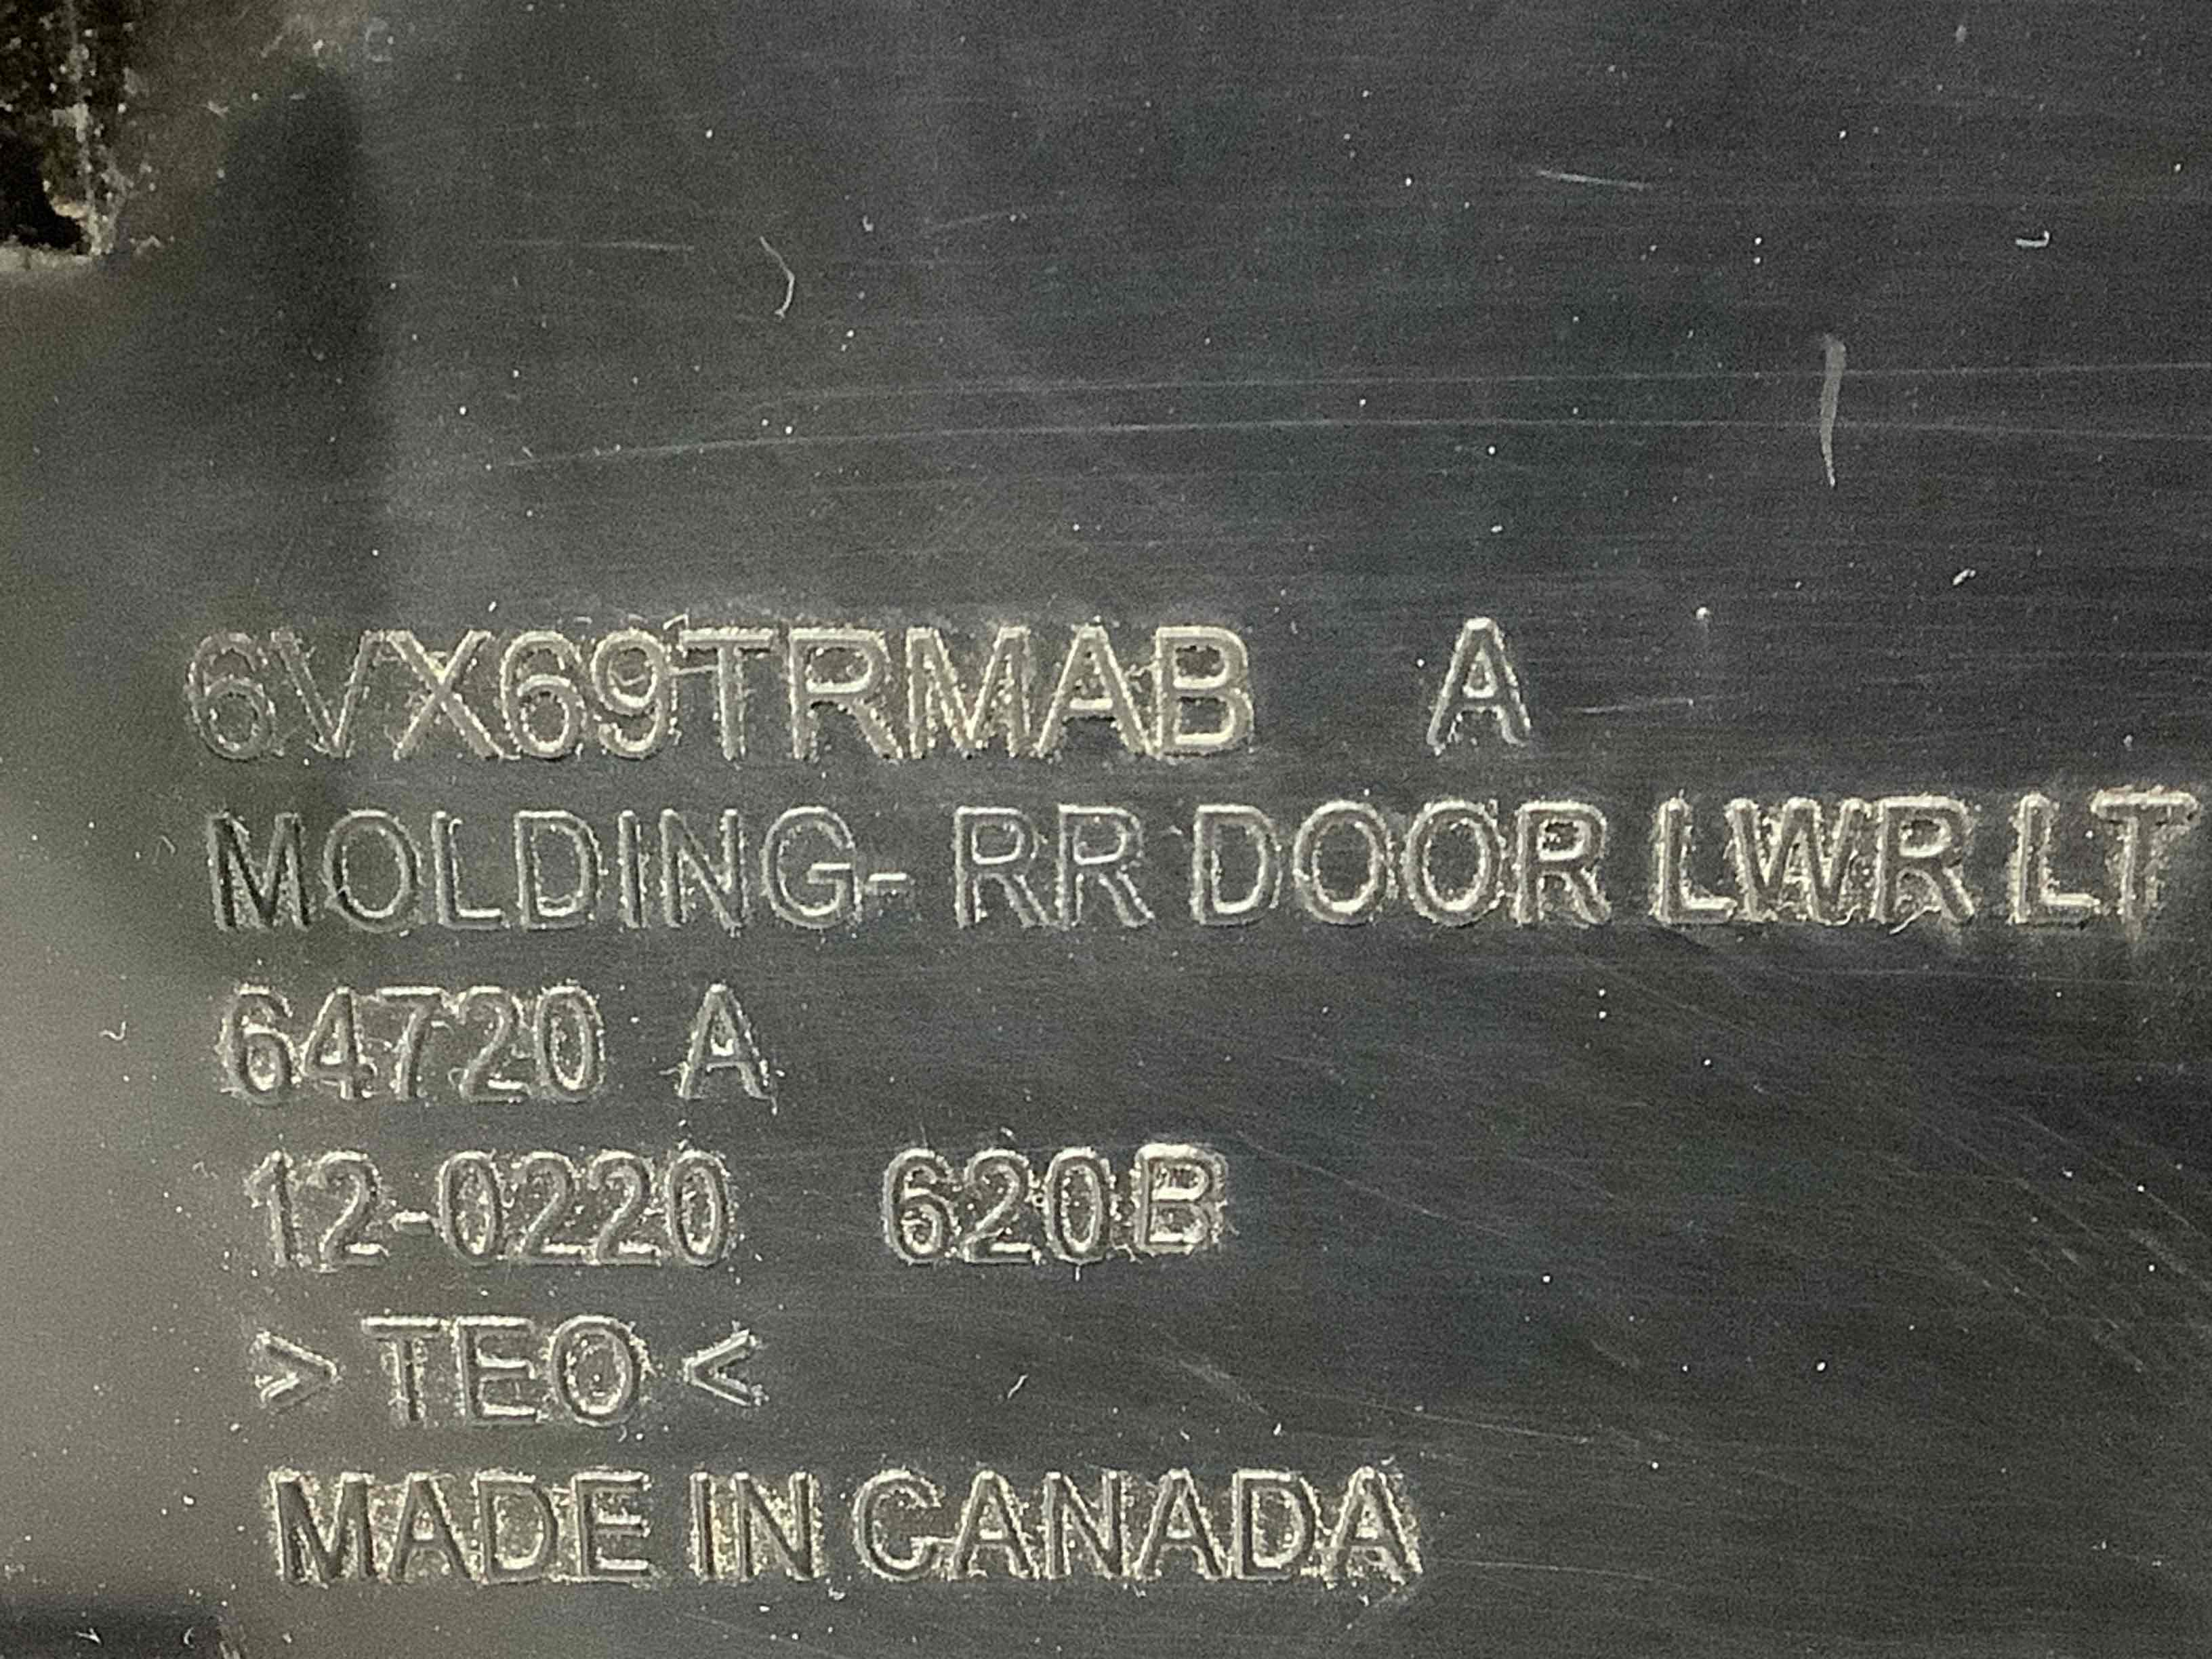 6VX69TRMAB A
MOLDING- RR DOOR LWR LT
64720 A
12-0220 620B
>TEO<
MADE IN CANADA